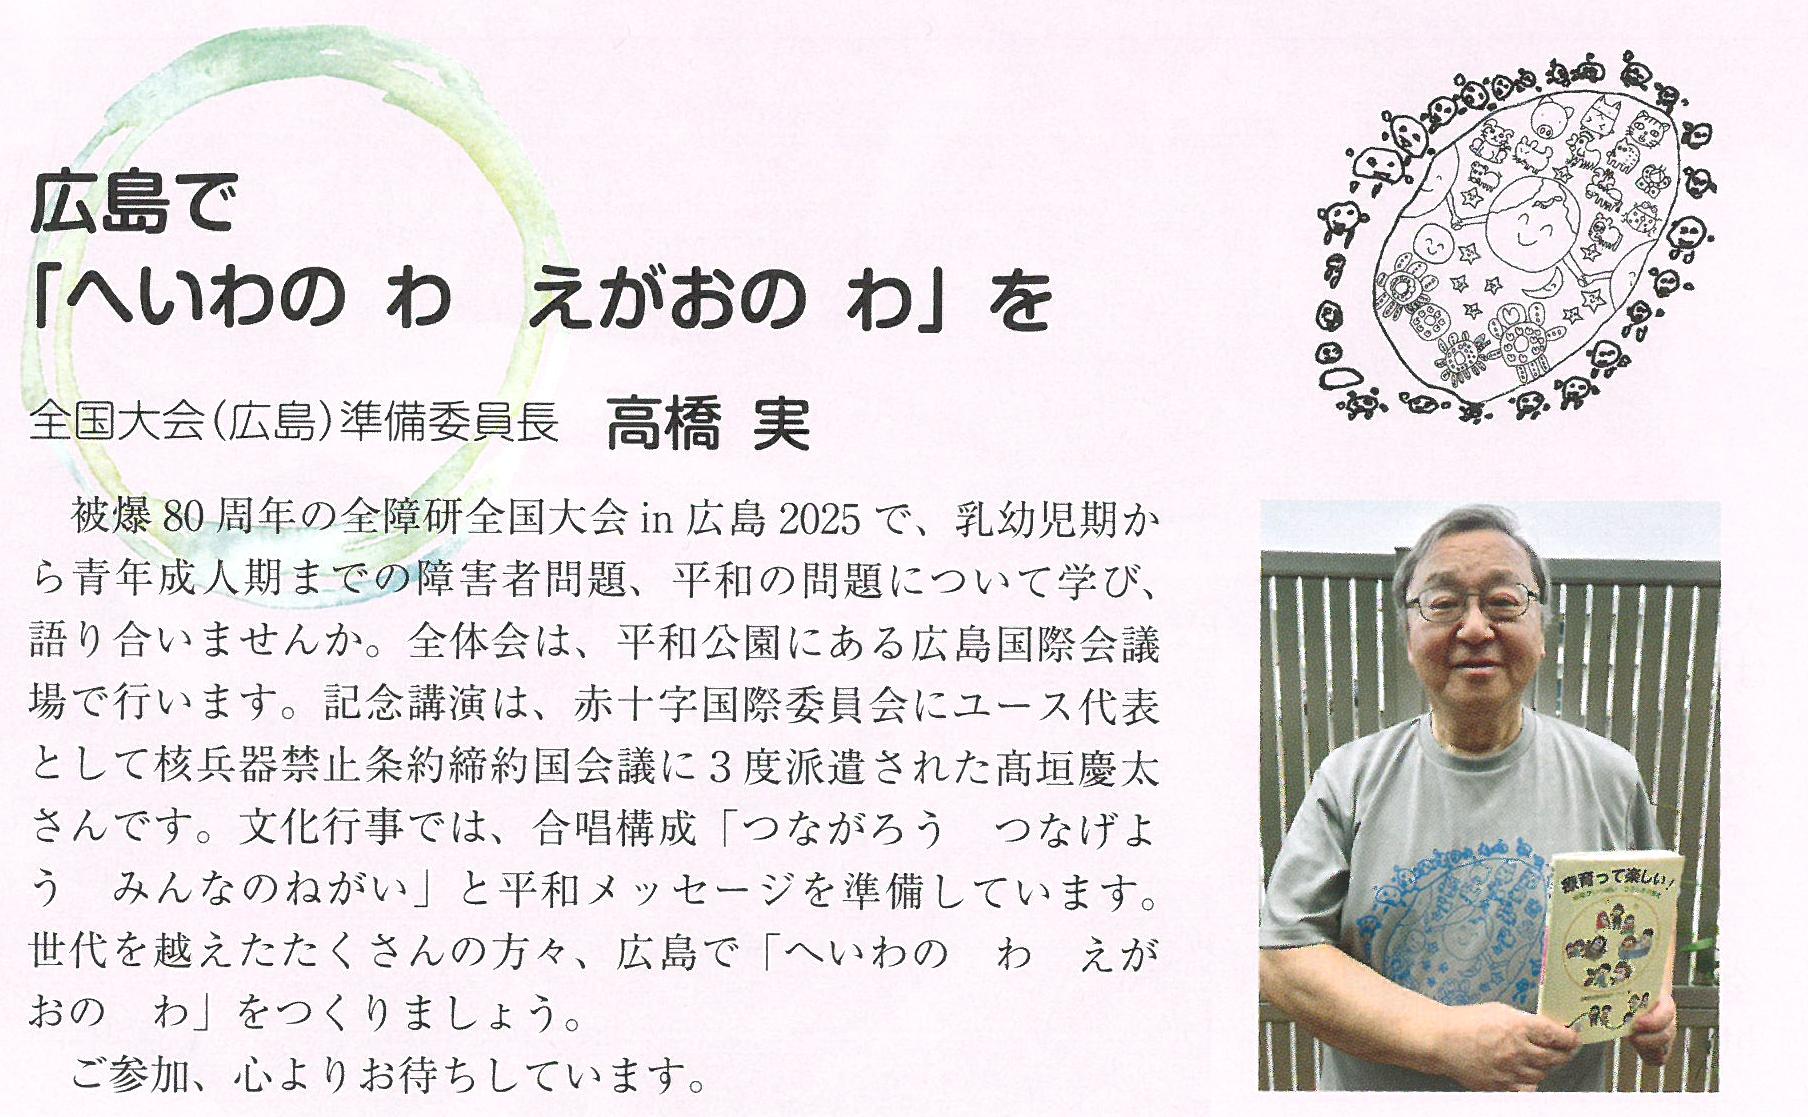 広島で
「へいわの わ　えがおの わ」を
全国大会（広島）準備委員長　高橋 実
被爆80周年の全障研全国大会in広島2025で、乳幼児期か
ら青年成人期までの障害者問題、平和の問題について学び、
語り合いませんか。全体会は、平和公園にある広島国際会議
場で行います。記念講演は、赤十字国際委員会にユース代表
として核兵器禁止条約締約国会議に3度派遣された髙垣慶太
さんです。文化行事では、合唱構成「つながろう　つなげよ
う　みんなのねがい」と平和メッセージを準備しています。
世代を越えたたくさんの方々、広島で「へいわの　わ　えが
おの　わ」をつくりましょう。
ご参加、心よりお待ちしています。
療育って楽しい！